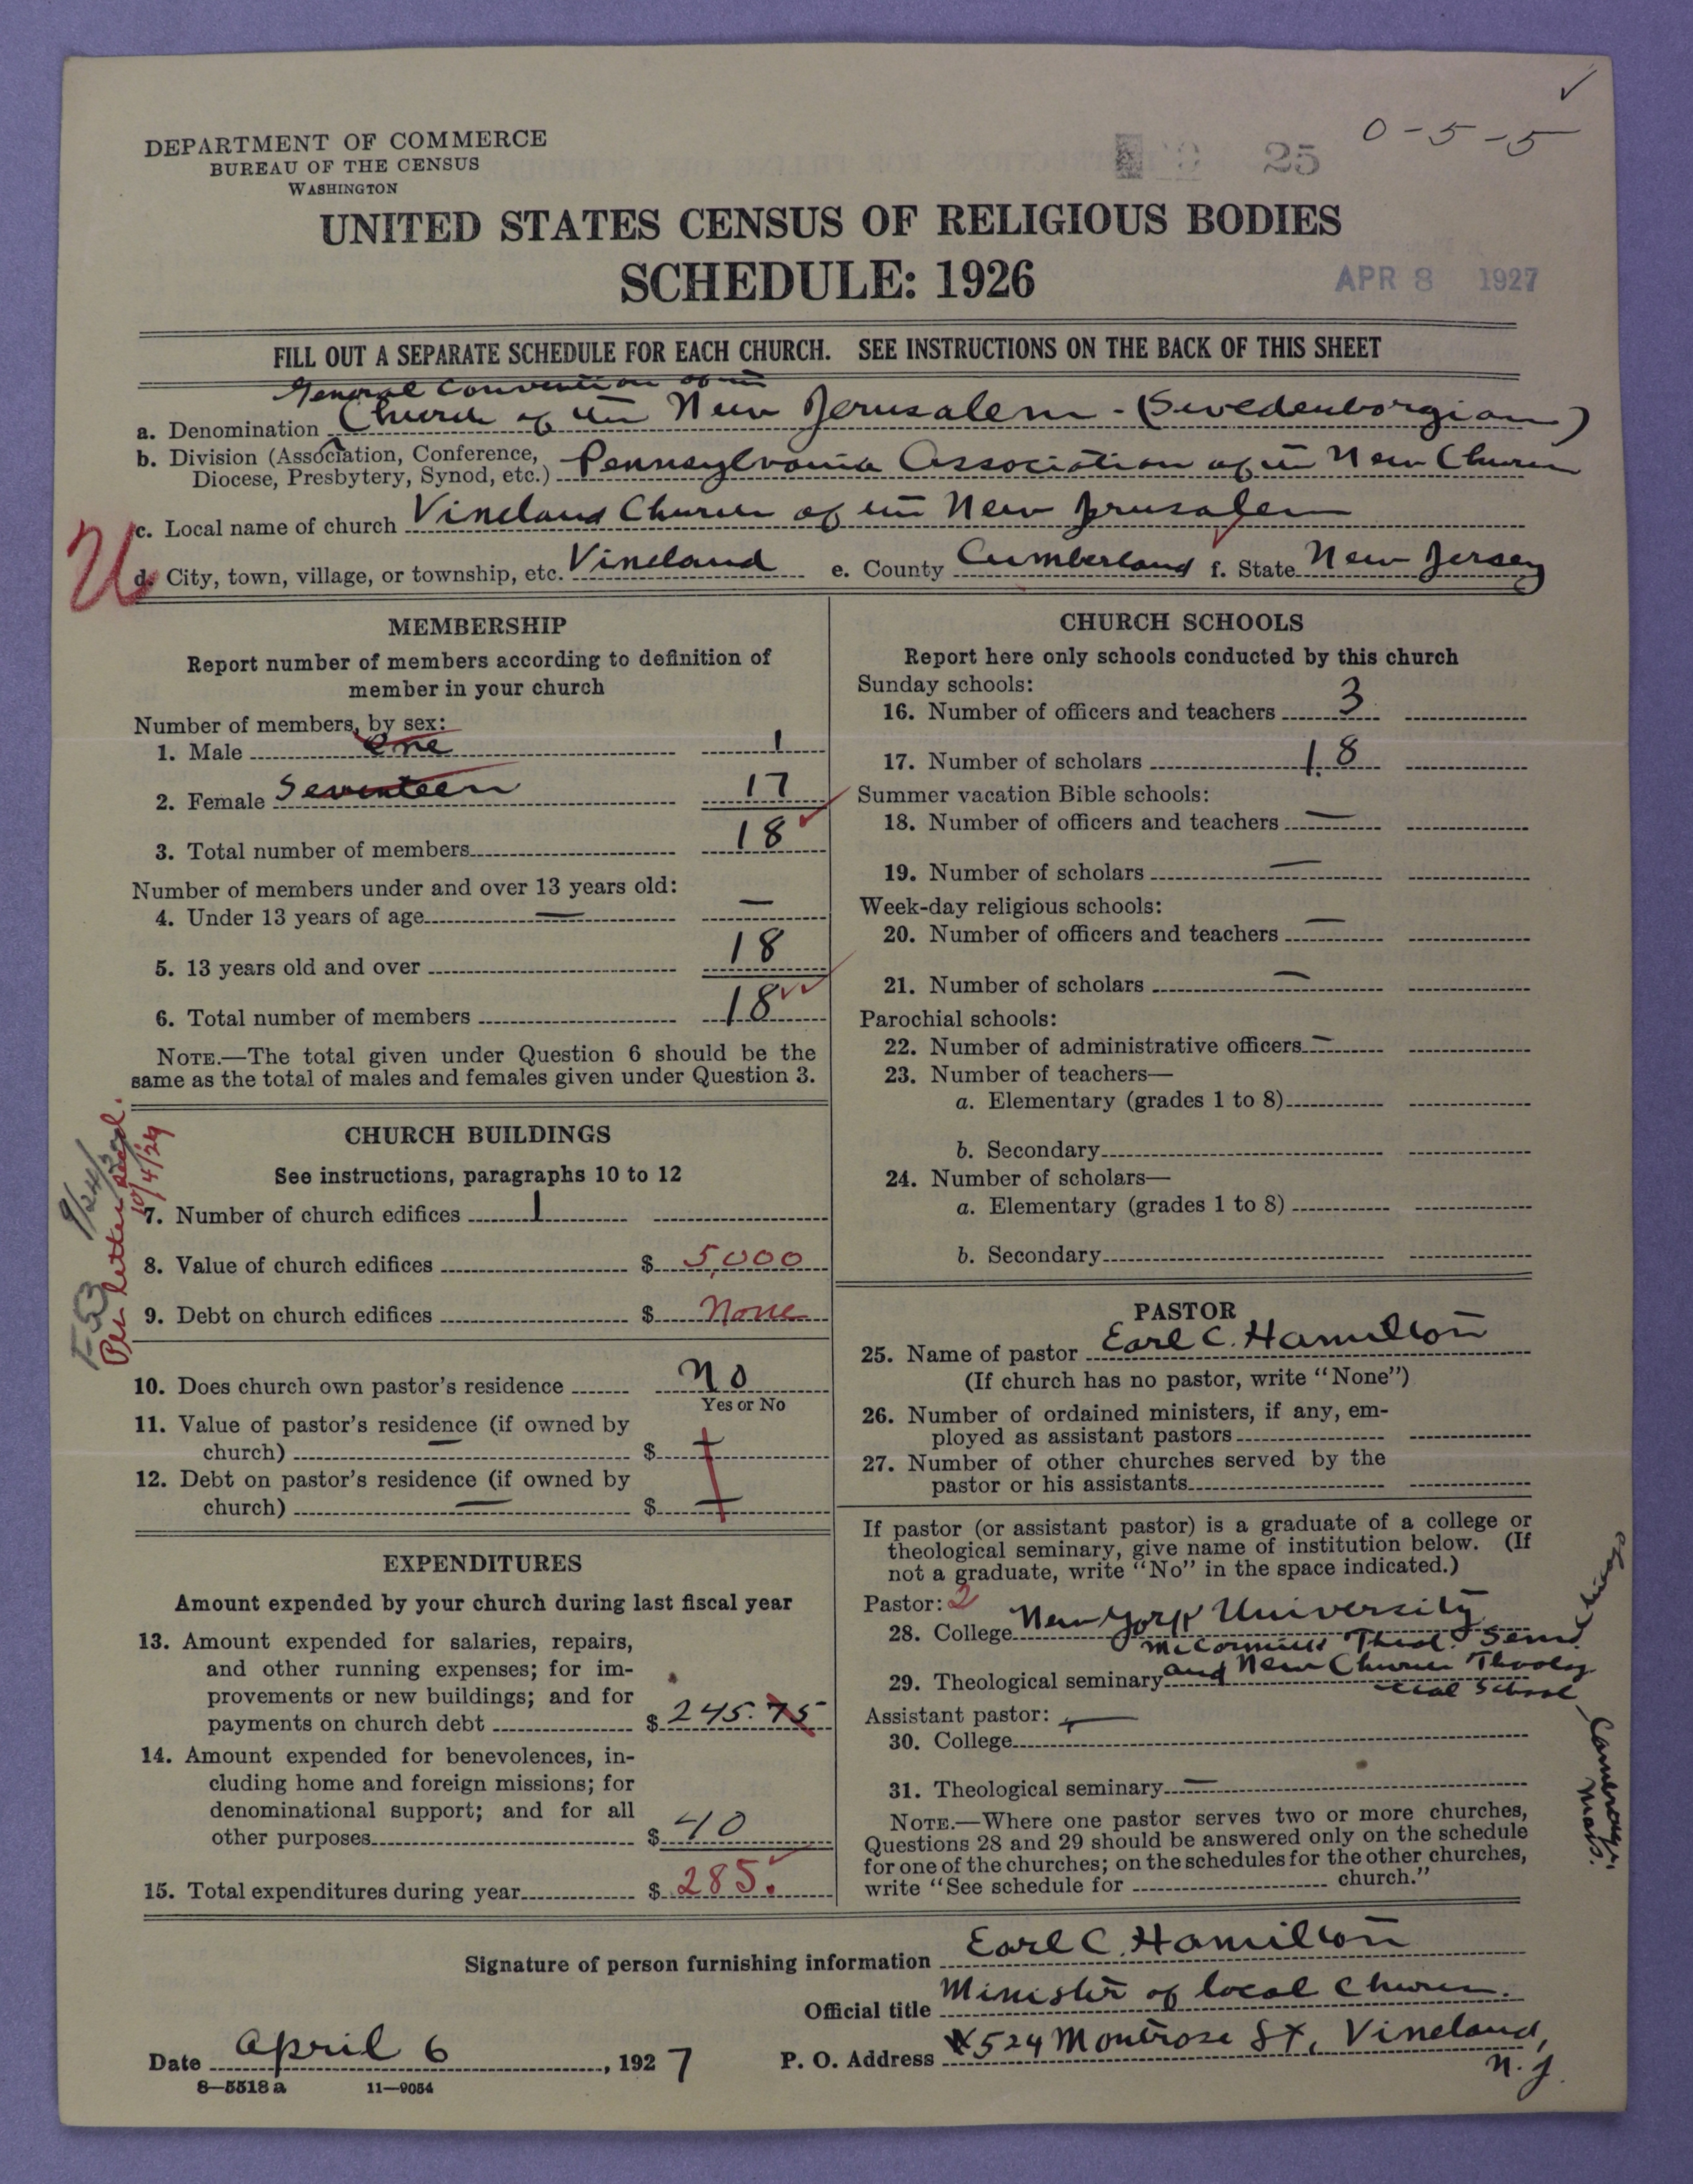 ✓
0-5-5
25
DEPARTMENT OF COMMERCE
BUREAU OF THE CENSUS
WASHINGTON
UNITED STATES CENSUS OF RELIGIOUS BODIES
SCHEDULE: 1926
APR 8 1927
FILL OUT A SEPARATE SCHEDULE FOR EACH CHURCH. SEE INSTRUCTIONS ON THE BACK OF THIS SHEET
General Convention of the
a. Denomination Church of the New Jerusalem - (Swedenborgian)
b. Division (Association, Conference, Diocese, Presbytery, Synod, etc.) Pennsylvania Association of the New Church
c. Local name of church Vineland Church of the New Jerusalem
U
d. City, town, village, or township, etc. Vineland e. County Cumberland f. State New Jersey
MEMBERSHIP
Report number of members according to definition of
member in your church
Number of members, by sex:
1. Male One 1
2. Female Seventeen 17
3. Total number of members 18
Number of members under and over 13 years old:
4. Under 13 years of age — —
5. 13 years old and over 18
6. Total number of members 18
NOTE.—The total given under Question 6 should be the
same as the total of males and females given under Question 3.
CHURCH BUILDINGS
See instructions, paragraphs 10 to 12
7. Number of church edifices 1
8. Value of church edifices $ 5,000
9. Debt on church edifices $ None
Per letter recd.
10/4/29
10. Does church own pastor's residence No
Yes or No
11. Value of pastor's residence (if owned by
church) — $ —
12. Debt on pastor's residence (if owned by
church) — $ —
EXPENDITURES
Amount expended by your church during last fiscal year
13. Amount expended for salaries, repairs,
and other running expenses; for im-
provements or new buildings; and for
payments on church debt $ 245.75
14. Amount expended for benevolences, in-
cluding home and foreign missions; for
denominational support; and for all
other purposes $ 40
15. Total expenditures during year $ 285.
CHURCH SCHOOLS
Report here only schools conducted by this church
Sunday schools:
16. Number of officers and teachers 3
17. Number of scholars 18
Summer vacation Bible schools:
18. Number of officers and teachers —
19. Number of scholars —
Week-day religious schools:
20. Number of officers and teachers —
21. Number of scholars —
Parochial schools:
22. Number of administrative officers —
23. Number of teachers—
a. Elementary (grades 1 to 8)
b. Secondary
24. Number of scholars—
a. Elementary (grades 1 to 8)
b. Secondary
PASTOR
25. Name of pastor Earl C. Hamilton
(If church has no pastor, write "None")
26. Number of ordained ministers, if any, em-
ployed as assistant pastors
27. Number of other churches served by the
pastor or his assistants
If pastor (or assistant pastor) is a graduate of a college or
theological seminary, give name of institution below. (If
not a graduate, write "No" in the space indicated.)
Pastor: 2
28. College New York University
McCormick Theol. Sem. Chicago
29. Theological seminary and New Church Theolog
ical School — Cambridge, Mass.
Assistant pastor: —
30. College
31. Theological seminary —
NOTE.—Where one pastor serves two or more churches,
Questions 28 and 29 should be answered only on the schedule
for one of the churches; on the schedules for the other churches,
write "See schedule for church."
Signature of person furnishing information Earl C. Hamilton
Official title Minister of local church.
Date April 6, 1927 P. O. Address 524 Montrose St, Vineland,
N. J.
8—5518 a 11—9054